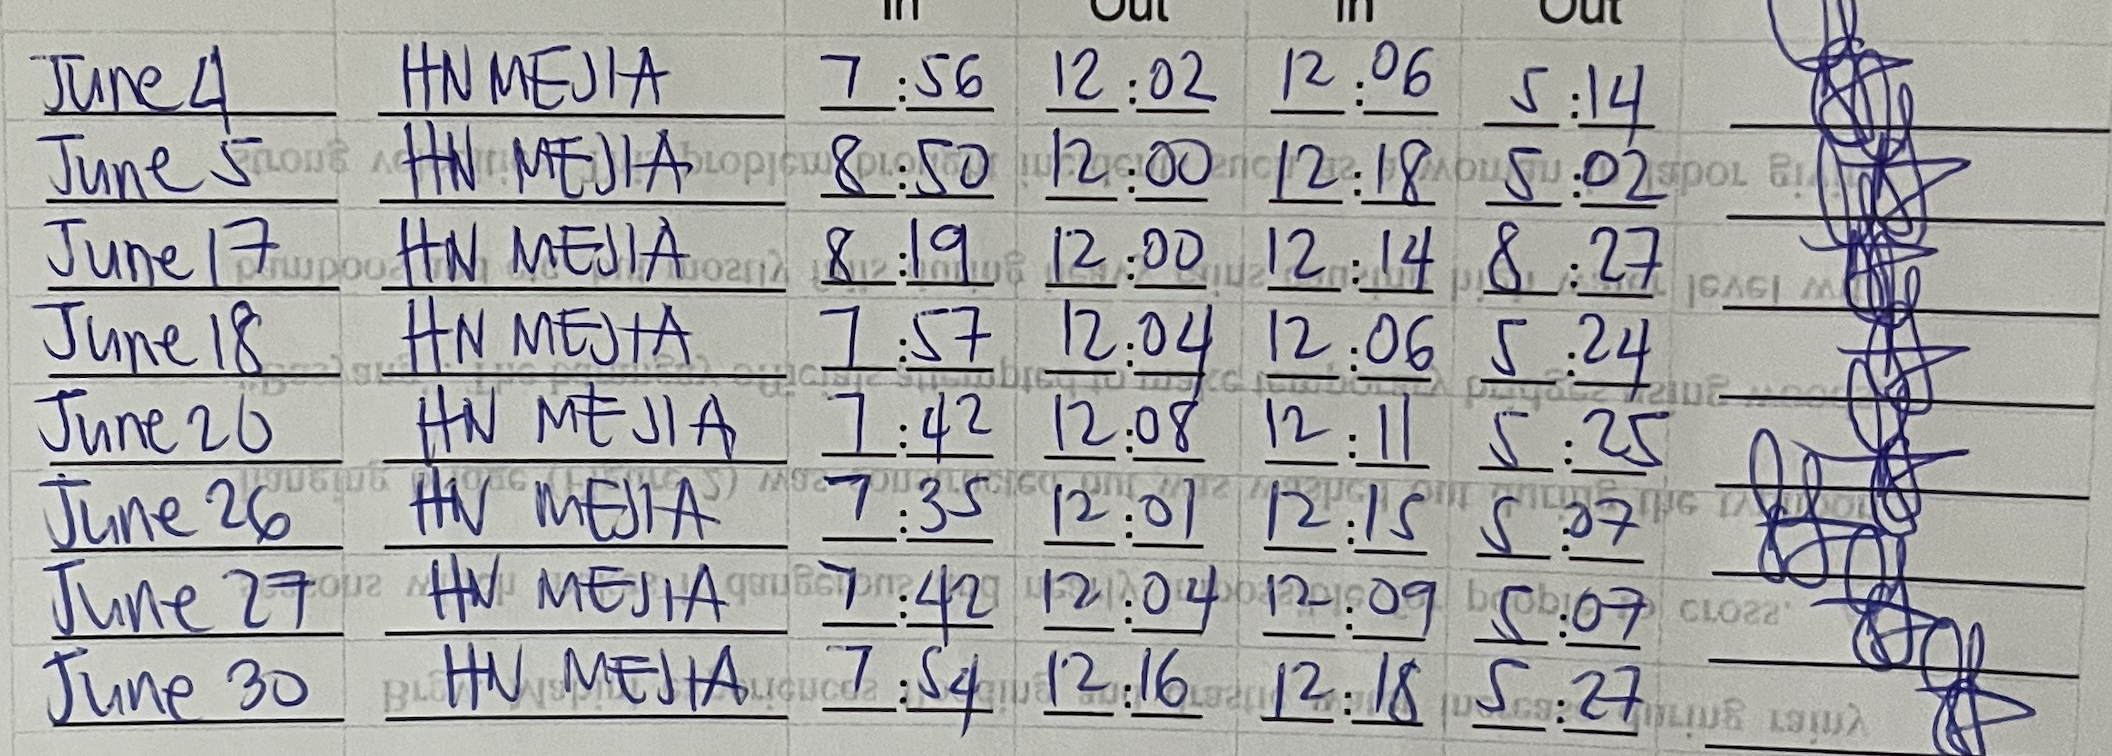 In Out In Out
June 4 HN MEJIA 7:56 12:02 12:06 5:14
June 5 HN MEJIA 8:50 12:00 12:18 5:02
June 17 HN MEJIA 8:19 12:00 12:14 8:27
June 18 HN MEJIA 7:57 12:04 12:06 5:24
June 20 HN MEJIA 7:42 12:08 12:11 5:25
June 26 HN MEJIA 7:35 12:01 12:15 5:07
June 27 HN MEJIA 7:42 12:04 12:09 5:07
June 30 HN MEJIA 7:54 12:16 12:18 5:27